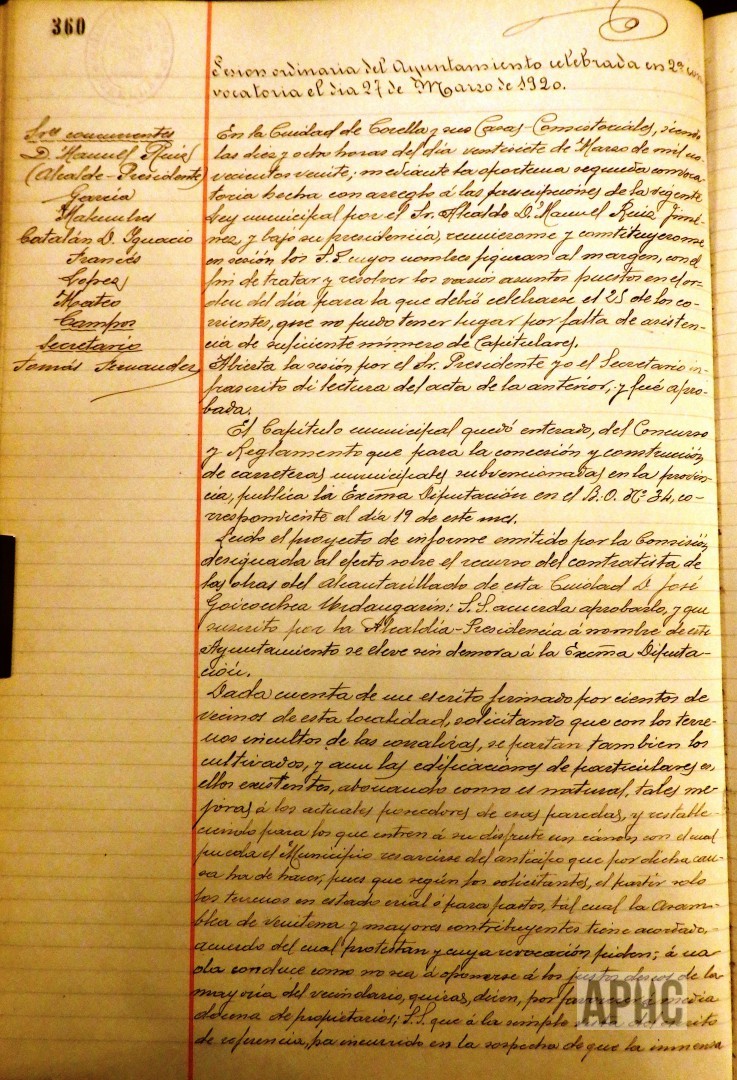 360
Sesion ordinaria del Ayuntamiento celebrada en 2ª con-
vocatoria el dia 27 de Marzo de 1920.
Sres concurrentes
D. Manuel Ruiz
(Alcalde-Presidente)
Garcia
Malumbres
Catalán D. Ignacio
Francés
Lopez
Mateo
Campos
Secretario
Tomás Fernandez
En la Ciudad de Corella y sus Casas-Consistoriales, siendo
las diez y ocho horas del dia ventisiete de Marzo de mil no-
vecientos veinte; mediante la oportuna segunda convoca-
toria hecha con arreglo á las prescripciones de la vigente
Ley municipal por el Sr. Alcalde D. Manuel Ruiz Jimé-
nez y bajo su presidencia, reunierome y constituyerome
en sesión, los S.S. cuyos nombres figuran al margen, con el
fin de tratar y resolver los varios asuntos puestos en el or-
den del dia para la que debió celebrarse el 25 de los co-
rrientes, que no pudo tener lugar por falta de asisten-
cia de suficiente número de Capitulares.
Abierta la sesión por el Sr. Presidente yo el Secretario in-
frascrito di lectura del acta de la anterior, y fué apro-
bada.
El Capítulo municipal quedó enterado, del Concurso
y Reglamento que para la concesión y construcción
de carreteras municipales subvencionadas en la provin-
cia, publica la Excma Diputación en el B.O. Nº 34, co-
rrespondiente al día 19 de este mes.
Leido el proyecto de informe emitido por la Comisión
designada al efecto sobre el recurso del contratista de
las obras del Alcantarillado de esta Ciudad D. José
Goicoechea Urdangarin: S.S. acuerda aprobarlo, y que
suscrito por la Alcaldía-Presidencia á nombre de este
Ayuntamiento se eleve sin demora á la Excma Diputa-
ción.
Dada cuenta de un escrito firmado por cientos de
vecinos de esta localidad, solicitando que con los terre-
nos incultos de las corralizas, se partan tambien los
cultivados, y aun las edificaciones de particulares en
ellos existentes, abonando como es natural, tales me-
joras á los actuales poseedores de esas parcelas, y estable-
ciendo para los que entren á su disfrute un cánon con el cual
pueda el Municipio resarcirse del anticipo que por dicha cau-
sa ha de hacer, pues que según los solicitantes, el partir solo
los terrenos en estado erial ó para pastos, tal cual la Asam-
blea de veintena y mayores contribuyentes tiene acordado,
acuerdo del cual protestan y cuya revocación piden; á na-
da conduce como no sea á oponerse á los justos deseos de la
mayoría del vecindario, quizas, dicen, por favorecer á media
docena de propietarios; S.S. que á la simple del escrito
de referencia, ha incurrido en la sospecha de que la inmensa
APHC